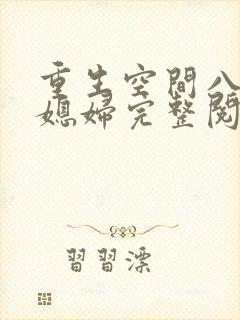 重生空間八
媳婦完整閱
習習漂